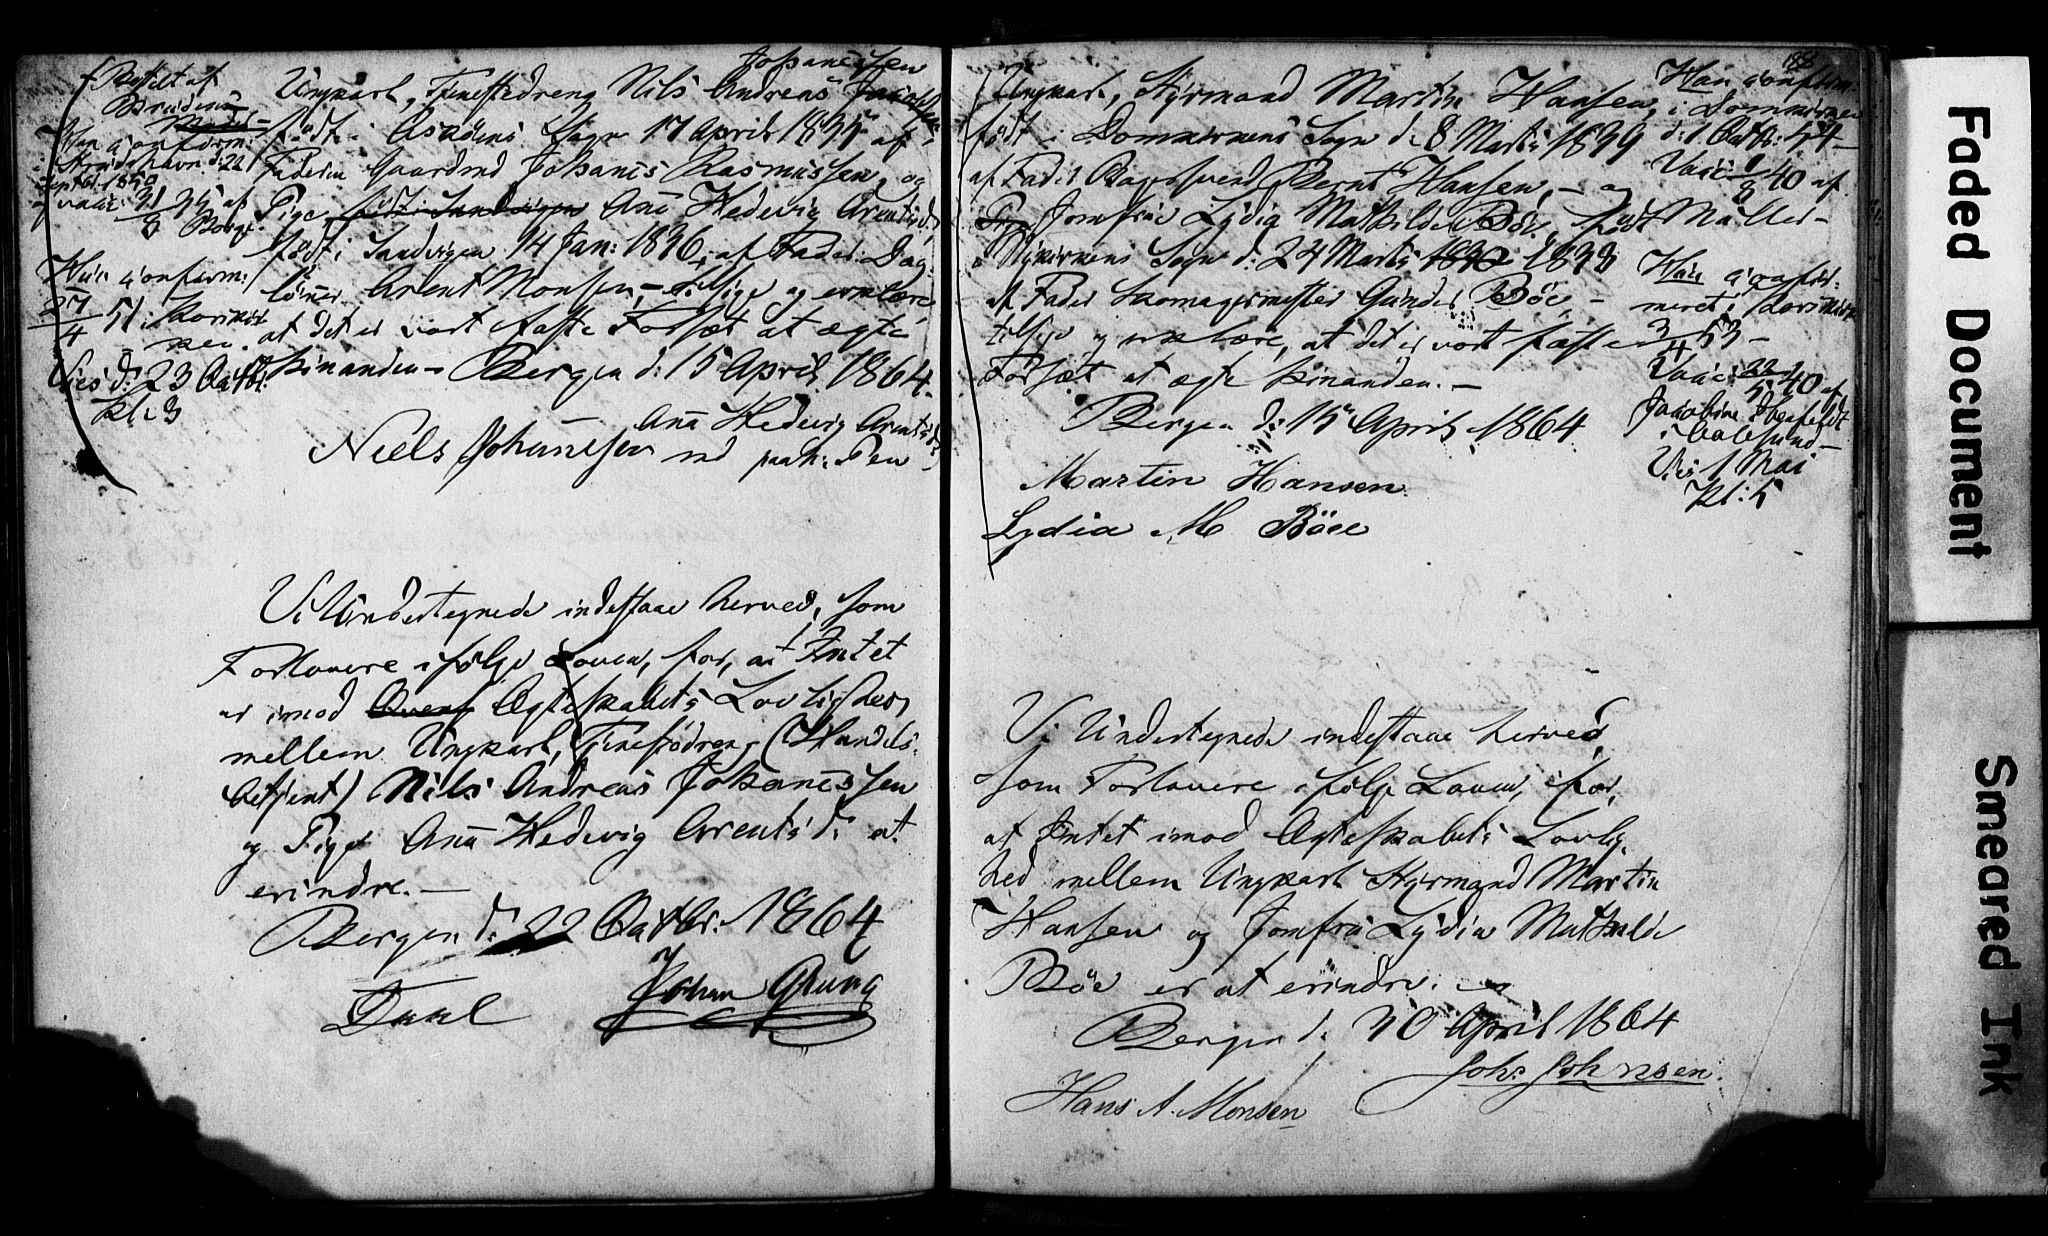 Bestilt af
Bruden
Han confirm:
22
Septbr. 1850
Vacc: 31/8 35 af
Hun confirm:
27/4 51 Korskir
ken.
Viet d: 23 Octbr:
Kl: 3
Johanessen
Ungkarl, Tjenestedreng Nils Andreas
født i Sogn 17 April 1835 af
Fader Gaardmd Johanes Rasmussen, og
Pige Ana Hedevig Arentsd.,
født i Sandvigen 14 Jan: 1836, af Fader Dag
lønner Arent Monsen, tilsige og erklære
at det er vort faste Forsæt at ægte
hinanden – Bergen d: 15 April 1864.
Ana Hedevig Arentsd.
Niels Johannessen md paah. Pen
Vi Undertegnede indestaae herved, som
Forlovere ifølge Loven, for, at Intet
er imod Ægteskabets Lovlighed
mellem Ungkarl, Tjenestedreng (Handels
betjent) Nils Andreas Johanessen
og Pige Ana Hedevig Arentsd: at
erindre. –
Bergen d: 22 Octbr: 1864
Daal Johan Grung
188
Ungkarl, Styrmand Martin Hansen,
født i Domkirkens Sogn d: 8 Marts 1839
af Fader Bagersvend Bernt Hansen, – og
Jomfrue Lydia Mathilde Böe, født
i Nykirkens Sogn d: 24 Marts 1832 1833
af Fader Skomagermester Gunder Böe –
tilsige og erklære, at det er vort faste
Forsæt at ægte hinanden. –
Bergen d: 15 April 1864
Martin Hansen.
Lydia M Böee
Han confirm:
i Domkirken
d: 1 Octb: 54 –
Vacc: 1/8 40 af
Müller –
Hun confir
meret i Korskirken
3/4 53 –
Vacc: 22/5 40 af
Jacobine
i
Viet 1 Mai
Kl: 5
Vi Undertegnede indestaae herved,
som Forlovere ifølge Loven, for,
at Intet imod Ægteskabets Lovlig
hed mellem Ungkarl Styrmand Martin
Hansen og Jomfru Lydia Mathilde
Böe er at erindre. –
Bergen d: 30 April 1864
Johs Johnsen.
Hans A. Monsen
Faded Document
Smeared Ink